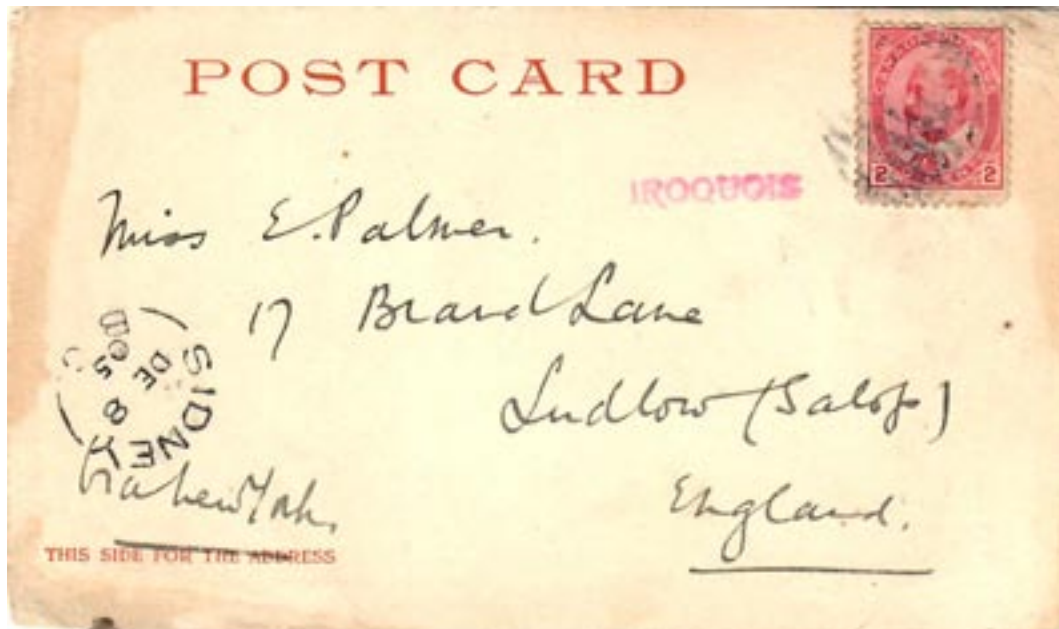 POST CARD
IROQUOIS
Miss E. Palmer.
17 Brand Lane
Ludlow (Salop)
England.
SIDNEY
DE 8
05
via New York.
THIS SIDE FOR THE ADDRESS
2 2